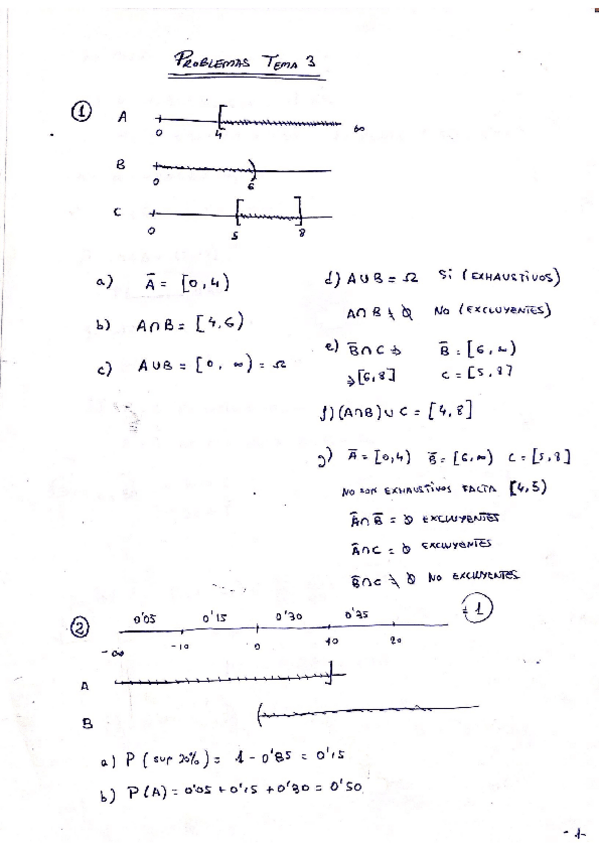 PROBLEMAS TEMA 3
① A 0 4 ∞
B 0 6
C 0 5 8
a) Ā = [0,4)
b) A∩B = [4,6)
c) A∪B = [0, ∞) = Ω
d) A∪B = Ω SI (EXHAUSTIVOS)
A∩B ≠ Ø NO (EXCLUYENTES)
e) B̄∩C ⇒ B̄ = [6, ∞)
⇒ [6,8] C = [5,8]
f) (A∩B)∪C = [4,8]
g) Ā = [0,4) B̄ = [6,∞) C = [5,8]
NO SON EXHAUSTIVOS FALTA [4,5)
Ā∩B̄ = Ø EXCLUYENTES
Ā∩C = Ø EXCLUYENTES
B̄∩C ≠ Ø NO EXCLUYENTES
② 0'05 0'15 0'30 0'35 = 1
-∞ -10 0 10 20
A
B
a) P (sup 20%) = 1 - 0'85 = 0'15
b) P(A) = 0'05 + 0'15 + 0'30 = 0'50
-1-